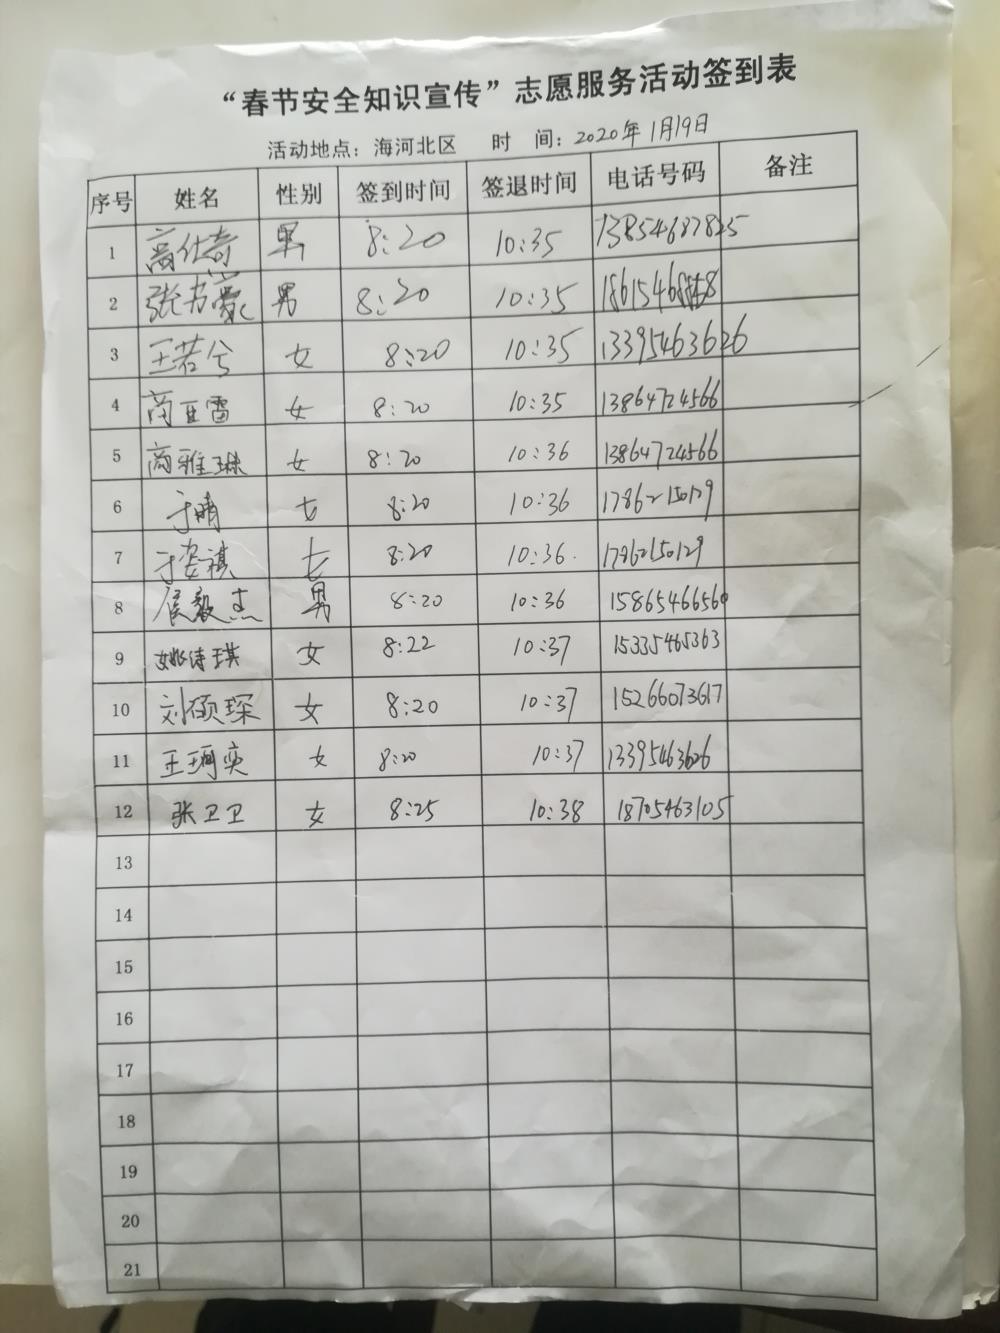 “春节安全知识宣传”志愿服务活动签到表
活动地点：海河北区 时 间：2020年1月19日
序号 姓名 性别 签到时间 签退时间 电话号码 备注
1 男 8:20 10:35 13854687825
2 男 8:20 10:35
3 王若兮 女 8:20 10:35 13395463626
4 女 8:20 10:35 13864724566
5 商雅琳 女 8:20 10:36 13864724566
6 于晴 女 8:20 10:36 17862150129
7 于安祺 女 8:20 10:36. 17862150129
8 侯毅杰 男 8:20 10:36 15865466560
9 姚诗琪 女 8:22 10:37 15335465363
10 刘硕琛 女 8:20 10:37 15266073617
11 王珂奕 女 8:20 10:37 13395463626
12 张卫卫 女 8:25 10:38 18705463105
13
14
15
16
17
18
19
20
21